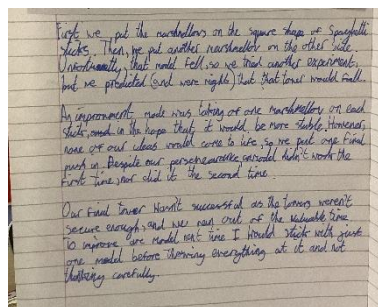 First we put the marshmellows on the square shape of Spaghetti
sticks. Then, we put another marshmellow on the other side.
Unfortunatly, that model fell, so we tried another experiment,
but we predicted (and were right) that that tower would fall.
An improvment made was taking of one marshmellow on each
stick, and in the hope that it would be more stable, However,
none of our ideas would come to life, so we put one final
push in. Despite our model didn't work the
first time, nor did it the second time.
Our final tower wasn't successful as the towers weren't
secure enough, and we ran out of the valuable time.
To improve are model next time I would stick with just
one model before throwing everything at it and not
thinking carefully.